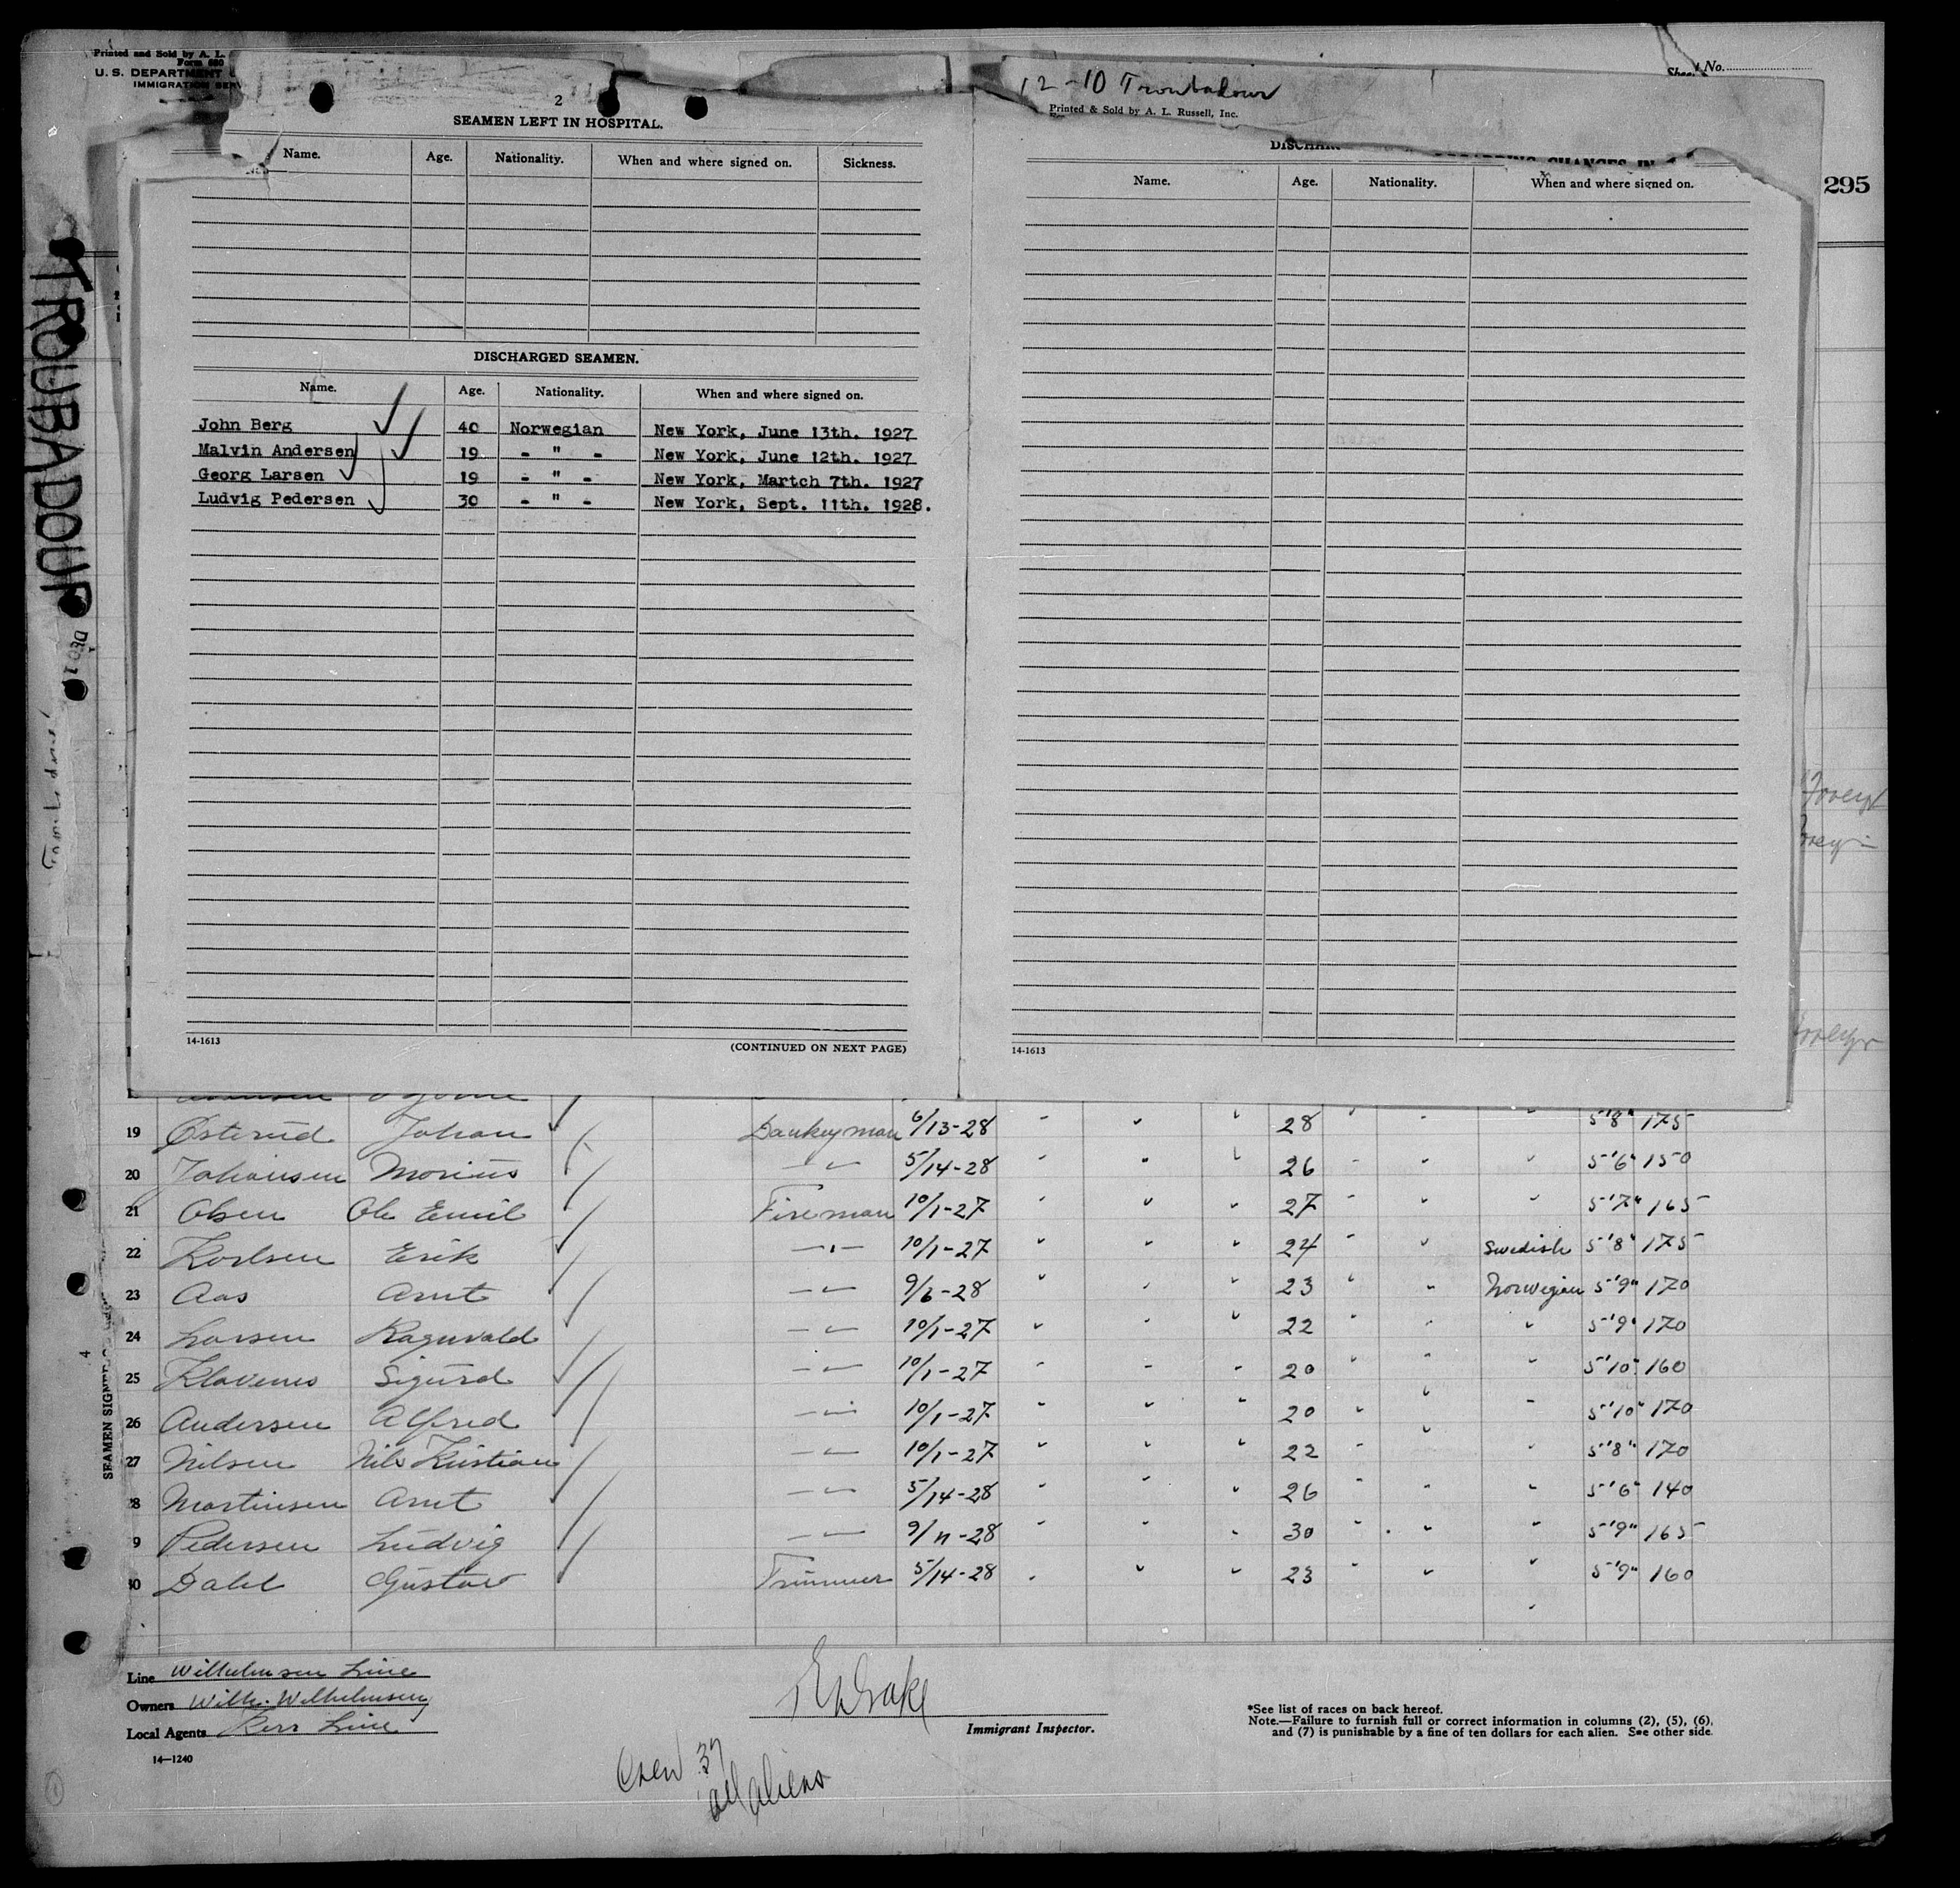 Printed and Sold by A. L.
Form 680
U. S. DEPARTMENT
IMMIGRATION SERV
No.
12-10 Troubadour
Printed & Sold by A. L. Russell, Inc.
295
TROUBADOUR
2
SEAMEN LEFT IN HOSPITAL.
Name. Age. Nationality. When and where signed on. Sickness.
DISCHARGED SEAMEN.
Name. Age. Nationality. When and where signed on.
John Berg 40 Norwegian New York, June 13th. 1927
Malvin Andersen 19 - " - New York, June 12th. 1927
Georg Larsen 19 - " - New York, Martch 7th. 1927
Ludvig Pedersen 30 - " - New York, Sept. 11th. 1928.
14-1613
(CONTINUED ON NEXT PAGE)
CHANGES IN
Name. Age. Nationality. When and where signed on.
14-1613
SEAMEN SIGNED
4
19 Østerud Johan Donkeyman 6/13-28 " " " 28 " " " 5'8" 175
20 Johansen Morius -"- 5/14-28 " " " 26 " " " 5'6" 150
21 Olsen Ole Emil Fireman 10/1-27 " " " 27 " " " 5'7" 165
22 Karlsen Erik -"- 10/1-27 " " " 24 " " Swedish 5'8" 175
23 Aas Arnt -"- 9/6-28 " " " 23 " " Norwegian 5'9" 170
24 Larsen Ragnvald -"- 10/1-27 " " " 22 " " " 5'9" 170
25 Klavenes Sigurd -"- 10/1-27 " " " 20 " " " 5'10" 160
26 Andersen Alfred -"- 10/1-27 " " " 20 " " " 5'10" 170
27 Nilsen Nils Kristian -"- 10/1-27 " " " 22 " " " 5'8" 170
8 Martinsen Arnt -"- 5/14-28 " " " 26 " " " 5'6" 140
9 Pedersen Ludvig -"- 9/11-28 " " " 30 " " " 5'9" 165
30 Dahl Gustav Trimmer 5/14-28 " " " 23 " " " 5'9" 160
Line Wilhelmsen Line
Owners Wilh. Wilhelmsen
Local Agents Kerr Line
14—1240
Immigrant Inspector.
Crew 37
all aliens
*See list of races on back hereof.
Note.—Failure to furnish full or correct information in columns (2), (5), (6),
and (7) is punishable by a fine of ten dollars for each alien. See other side.